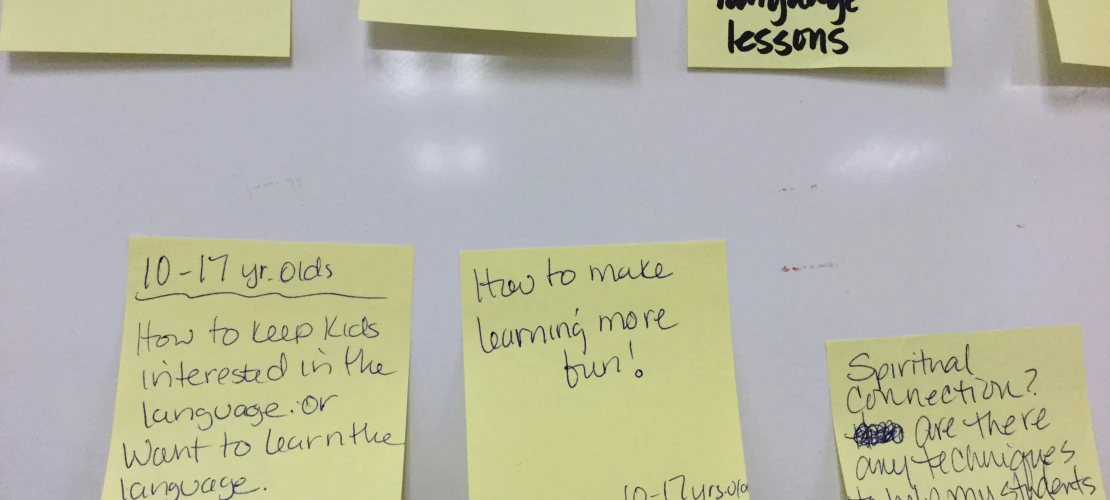 language
lessons
10-17 yr. olds
How to keep kids
interested in the
language. or
Want to learn the
language.
How to make
learning more
fun!
10-17 yrs. old
Spiritual
connection?
are there
any techniques
to help my students